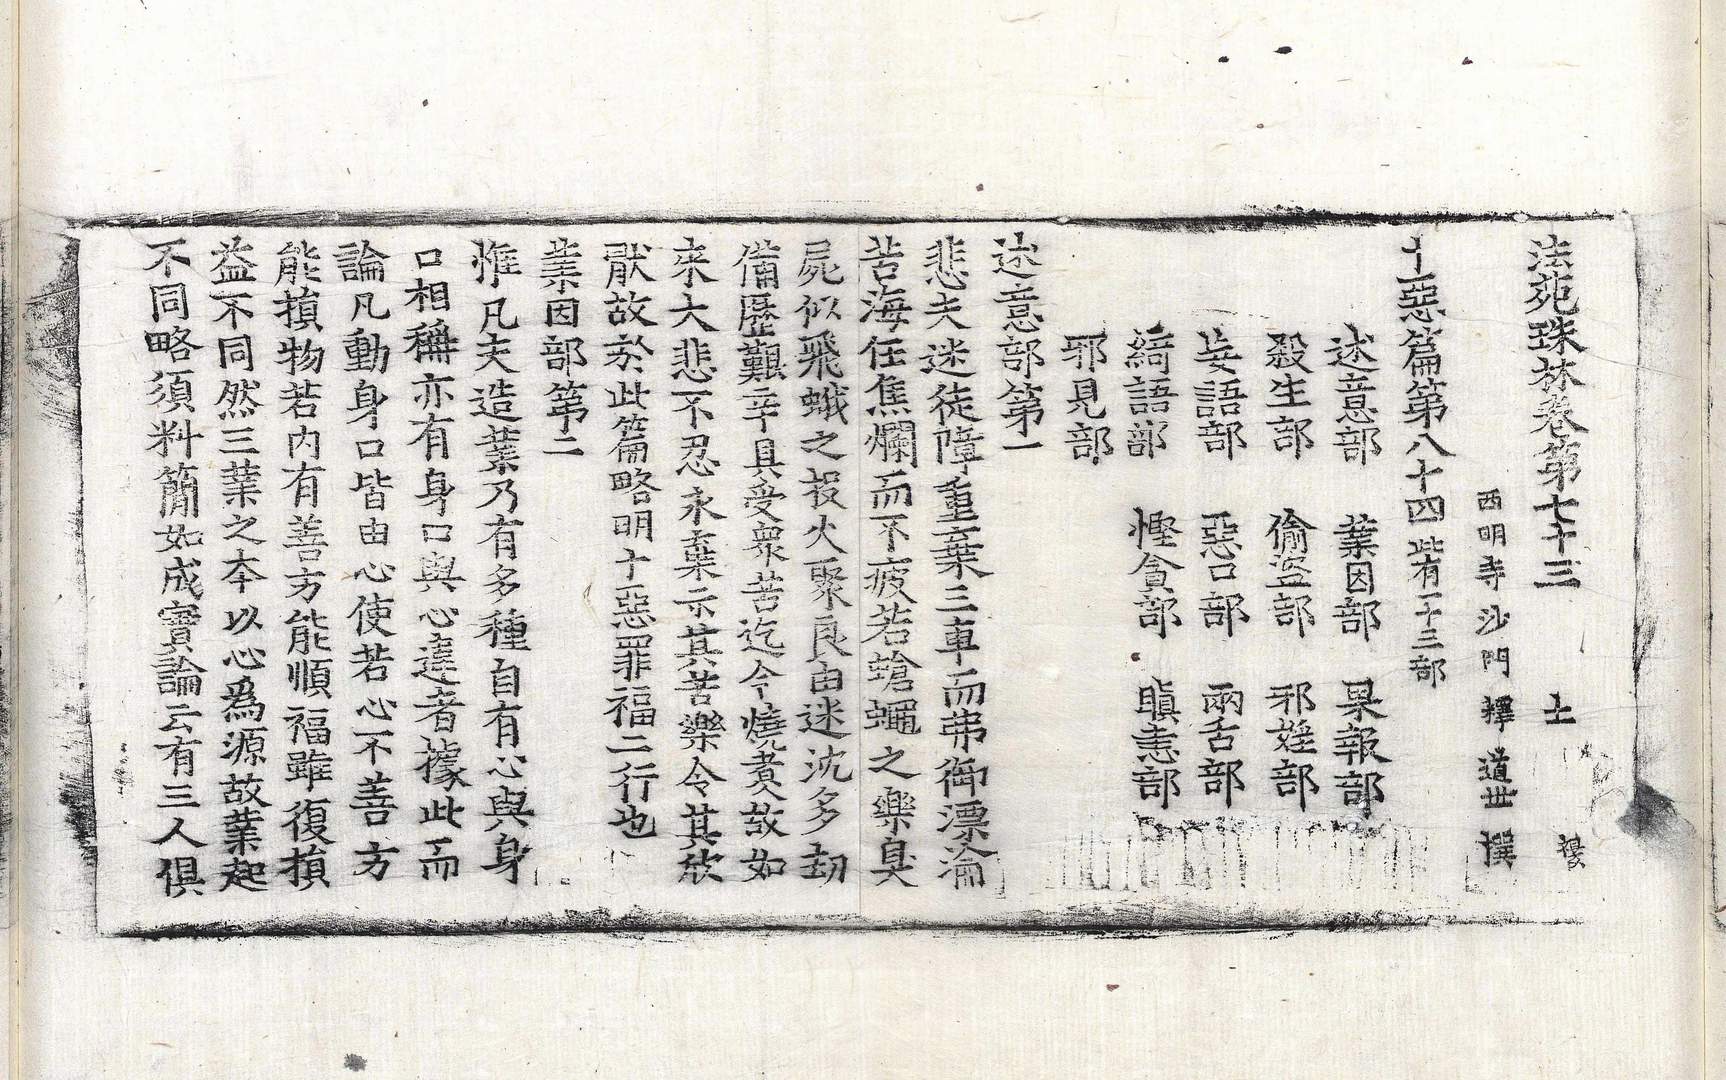 法苑珠林卷第七十三 土
西明寺沙門釋道世撰
十惡篇第八十四 此有一十三部
述意部 業因部 果報部
殺生部 偷盜部 邪婬部
妄語部 惡口部 兩舌部
綺語部 慳貪部 瞋恚部
邪見部
述意部第一
悲夫迷徒障重棄三車而弗御漂淪
苦海任焦爛而不疲若蒼蠅之樂臭
屍似飛蛾之投火聚良由迷沈多劫
備歷艱辛具受衆苦迄今燒煑故如
來大悲不忍永棄示其苦樂令其欣
猒故於此篇略明十惡罪福二行也
業因部第二
惟凡夫造業乃有多種自有心與身
口相稱亦有身口與心違者據此而
論凡動身口皆由心使若心不善方
能損物若內有善方能順福雖復損
益不同然三業之本以心爲源故業起
不同略須料簡如成實論云有三人俱